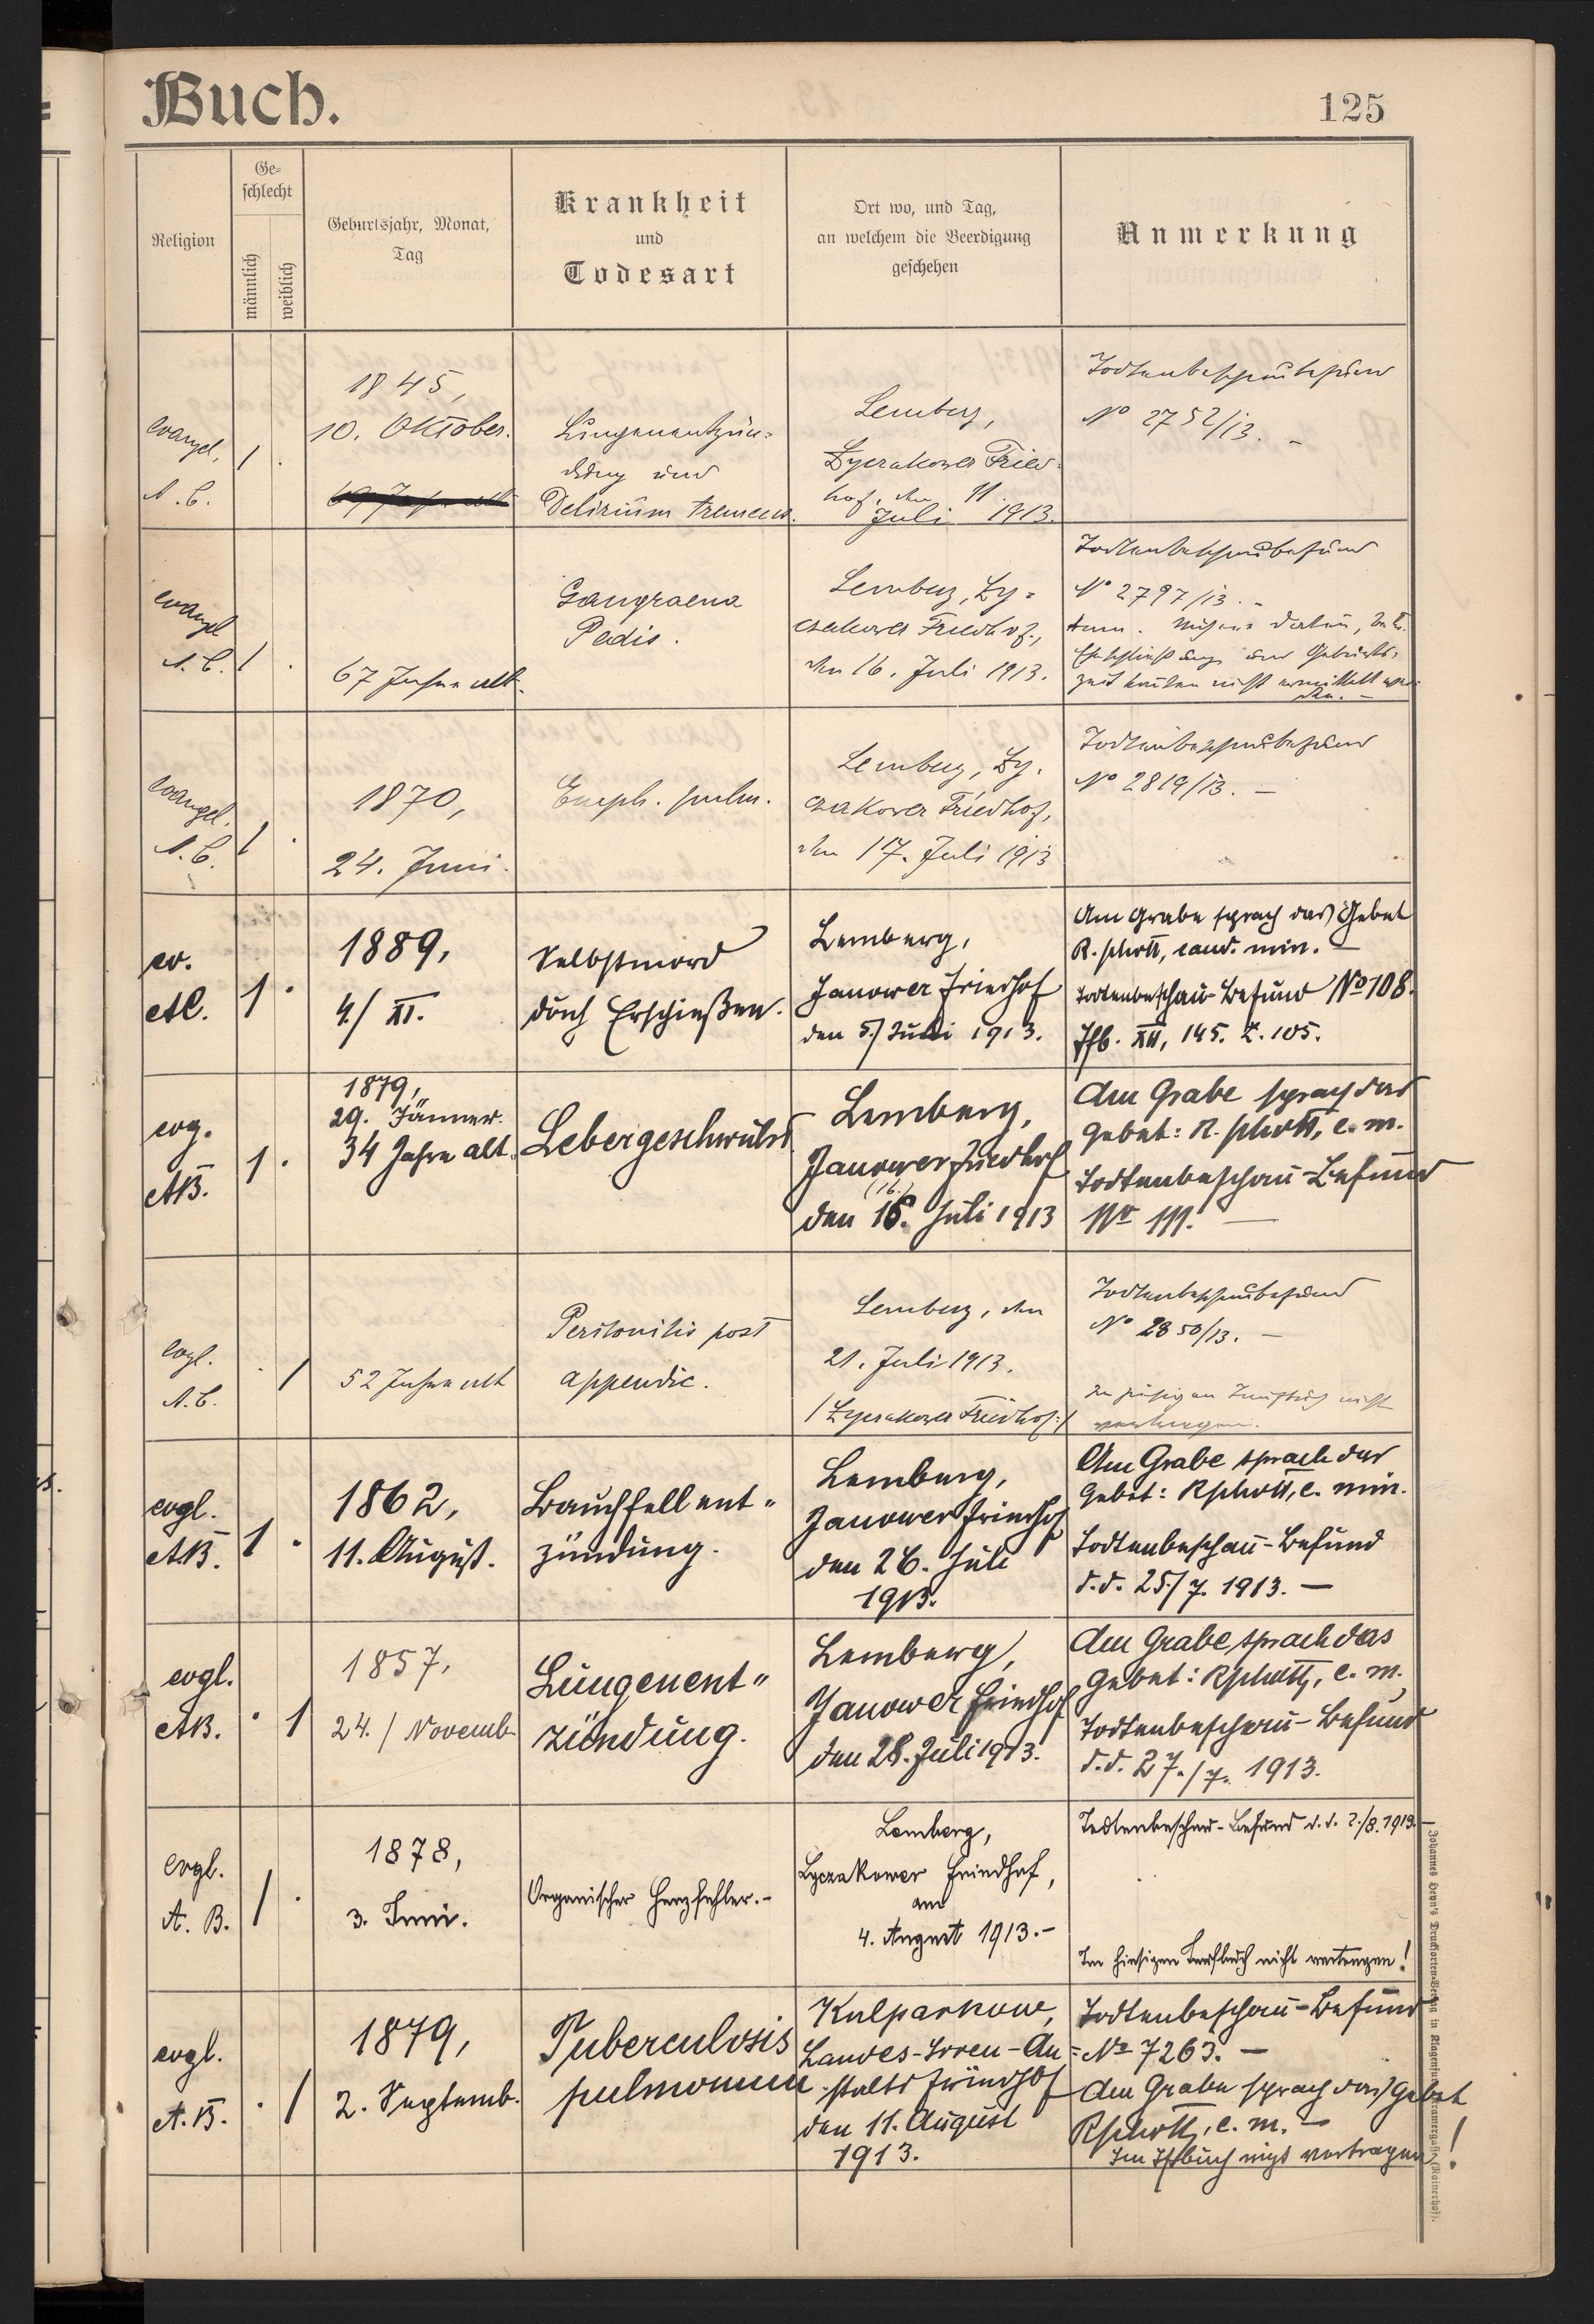 Buch.
125
Religion
Ge=
schlecht
männlich
weiblich
Geburtsjahr, Monat,
Tag
Krankheit
und
Todesart
Ort wo, und Tag,
an welchem die Beerdigung
geschehen
Anmerkung
evangel.
A. C.
1 .
1845,
10. Oktober.
Lungenentzün=
dung und
Delirium tremens.
Lemberg,
Lyczakower Fried=
hof, den 11.
Juli 1913.
Todtenbeschaubefund
No 2752/13. –
evangel
A. C.
1 .
67 Jahre alt.
Gangraena
Pedis.
Lemberg, Ly=
czakower Friedhof,
den 16. Juli 1913.
Todtenbeschaubefund
No 2797/13. –
Anm. Nähere Daten,
Eheschließung und Geburts-
zeit konnten nicht ermittelt wer-
den. –
evangel.
A. C.
1 .
1870,
24. Juni.
Emph. pulm.
Lemberg, Ly-
czakower Friedhof,
den 17. Juli 1913
Todtenbeschaubefund
No 2819/13. –
ev.
AC.
1 .
1889,
4./ XI.
Selbstmord
durch Erschießen.
Lemberg,
Janower Friedhof
den 5./ Juli 1913.
Am Grabe sprach das Gebet
R. Schott, cand. min. –
Todtenbeschau-Befund No 108.
Tfb. XII, 145. Z. 105.
evg.
AB.
1 .
1879,
29. Jänner.
34 Jahre alt.
Lebergeschwulst
Lemberg,
Janower Friedhof
(16.)
den 16. Juli 1913
Am Grabe sprach das
Gebet: R. Schott, c. m.
Todtenbeschau-Befund
No 111. –
evgl.
A. C.
. 1
52 Jahre alt
Peritonitis post
appendic.
Lemberg, den
21. Juli 1913.
/Lyczakower Friedhof:/
Todtenbeschaubefund
No 2850/13. –
Im hiesigen Taufbuch nicht
vertragen.
evgl.
AB.
1 .
1862,
11. August.
Bauchfellent"
zündung.
Lemberg,
Janower Friedhof
den 26. Juli
1913.
Am Grabe sprach das
Gebet: RSchott, c. min.
Todtenbeschau-Befund
d.d. 25./7. 1913. –
evgl.
AB.
. 1
1857,
24./ Novemb.
Lungenent"
zündung.
Lemberg,
Janower Friedhof
den 28. Juli 1913.
Am Grabe sprach das
Gebet: RSchott, c. m.
Todtenbeschau-Befund
d.d. 27./7. 1913.
evgl.
A. B.
1 .
1878,
3. Juni.
Organischer Herzfehler. –
Lemberg,
Lyczakower Friedhof,
am
4. August 1913. –
Todtenbeschau-Befund d. d. 2./8. 1913. –
Im hiesigen Taufbuch nicht vertragen!
evgl.
A. B.
. 1
1879,
2. Septemb.
Tuberculosis
pulmonum
Kulparkow,
Landes-Irren-An=
stalts Friedhof
den 11. August
1913.
Todtenbeschau-Befund
No 7263. –
Am Grabe sprach das Gebet
RSchott, c. m. –
Im Tfbuch nicht vertragen!